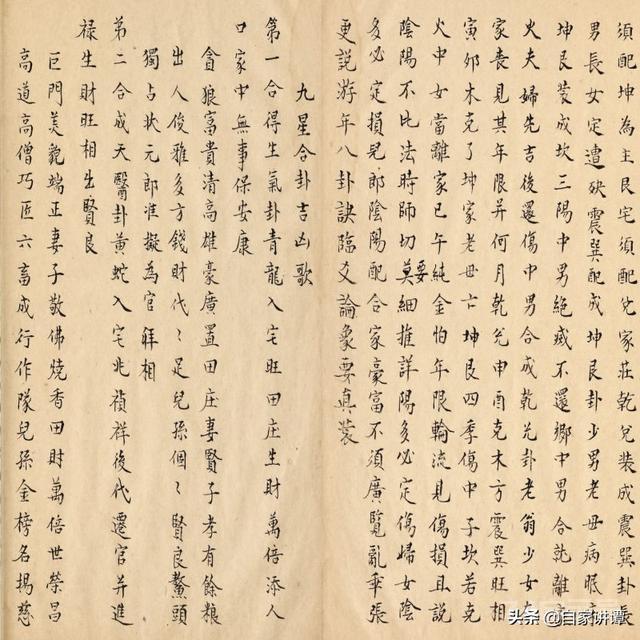 須配坤為主艮宅須配兌家莊乾兌裝成震巽卦長
男長女定遭殃震巽配成坤艮卦少男老母病眠床
坤艮裝成坎三陽中男絕滅不還鄉中男合乾離
火夫婦先吉後還傷中男合成乾兌卦老翁少女
家喪見其年限并何月乾兌申酉克木方震巽旺相
寅卯木克了坤家老母亡坤艮四季傷中子坎若克
火中女當離家巳午純金怕年限輪流見傷損且說
陰陽不比法時師切莫要細推詳陽多必定傷婦女陰
多必定損兒郎陰陽配合家豪富不須廣覽亂乖張
更說游年八卦訣臨爻論象要真裝
九星合卦吉凶歌
第一合得生氣卦青龍入宅旺田庄生財萬倍添人
口家中無事保安康
貪狼富貴清高雄豪廣置田庄妻賢子孝有餘粮
出人俊雅多方錢財代〻足兒孫個〻賢良鰲頭
獨占狀元郎准擬為官拜相
第二合成天醫卦黃蛇入宅兆禎祥後代遷官并進
祿生財旺相出賢良
巨門美貌端正妻子敬佛燒香田財萬倍世榮昌
高道高僧巧匠六畜成行作隊兒孫金榜名揚慈
头条 @自家讲谭